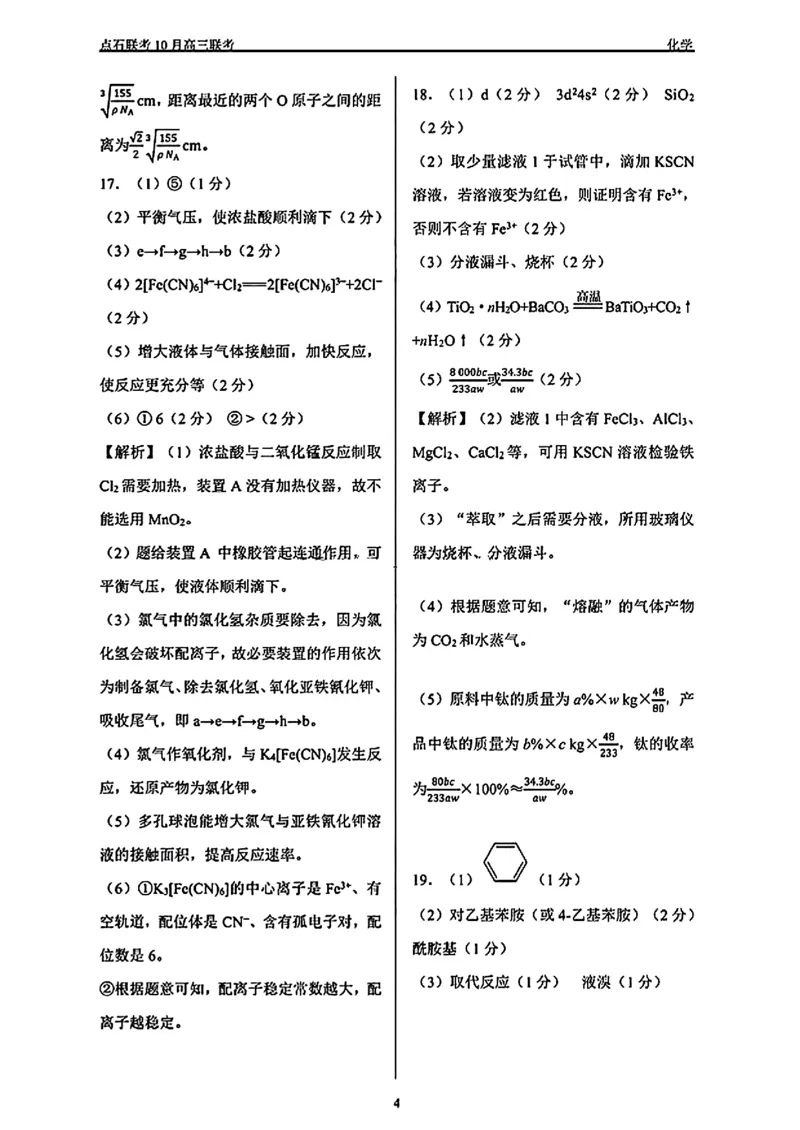 点石联考 10 月高三联考
化学
∛(155/ρN_A) cm，距离最近的两个 O 原子之间的距
离为 (√2/2)∛(155/ρN_A) cm。
17．（1）⑤（1 分）
（2）平衡气压，使浓盐酸顺利滴下（2 分）
（3）e→f→g→h→b（2 分）
（4）2[Fe(CN)₆]⁴⁻+Cl₂══2[Fe(CN)₆]³⁻+2Cl⁻
（2 分）
（5）增大液体与气体接触面，加快反应，
使反应更充分等（2 分）
（6）①6（2 分） ②>（2 分）
【解析】（1）浓盐酸与二氧化锰反应制取
Cl₂需要加热，装置 A 没有加热仪器，故不
能选用 MnO₂。
（2）题给装置 A 中橡胶管起连通作用，可
平衡气压，使液体顺利滴下。
（3）氯气中的氯化氢杂质要除去，因为氯
化氢会破坏配离子，故必要装置的作用依次
为制备氯气、除去氯化氢、氧化亚铁氰化钾、
吸收尾气，即 a→e→f→g→h→b。
（4）氯气作氧化剂，与 K₄[Fe(CN)₆]发生反
应，还原产物为氯化钾。
（5）多孔球泡能增大氯气与亚铁氰化钾溶
液的接触面积，提高反应速率。
（6）①K₃[Fe(CN)₆]的中心离子是 Fe³⁺、有
空轨道，配位体是 CN⁻、含有孤电子对，配
位数是 6。
②根据题意可知，配离子稳定常数越大，配
离子越稳定。
18．（1）d（2 分） 3d²4s²（2 分） SiO₂
（2 分）
（2）取少量滤液 1 于试管中，滴加 KSCN
溶液，若溶液变为红色，则证明含有 Fe³⁺，
否则不含有 Fe³⁺（2 分）
（3）分液漏斗、烧杯（2 分）
（4）TiO₂·nH₂O+BaCO₃ ══高温══ BaTiO₃+CO₂↑
+nH₂O↑（2 分）
（5）8 000bc/233aw 或 34.3bc/aw（2 分）
【解析】（2）滤液 1 中含有 FeCl₃、AlCl₃、
MgCl₂、CaCl₂等，可用 KSCN 溶液检验铁
离子。
（3）“萃取”之后需要分液，所用玻璃仪
器为烧杯、分液漏斗。
（4）根据题意可知，“熔融”的气体产物
为 CO₂和水蒸气。
（5）原料中钛的质量为 a%×w kg×48/80，产
品中钛的质量为 b%×c kg×48/233，钛的收率
为 80bc/233aw×100%≈34.3bc/aw%。
19．（1）（1 分）
（2）对乙基苯胺（或 4-乙基苯胺）（2 分）
酰胺基（1 分）
（3）取代反应（1 分） 液溴（1 分）
4